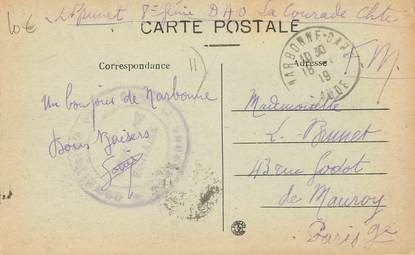 10€
Lt Brunet 8e Génie D A O La Courade Chte
CARTE POSTALE
Correspondance
Adresse
11
NARBONNE-GARE
10 30
18
19
AUDE
F.M.
Un bonjour de Narbonne
Bons Baisers
Mademoiselle
L. Brunet
43 rue Godot
de Mauroy
Paris 9e